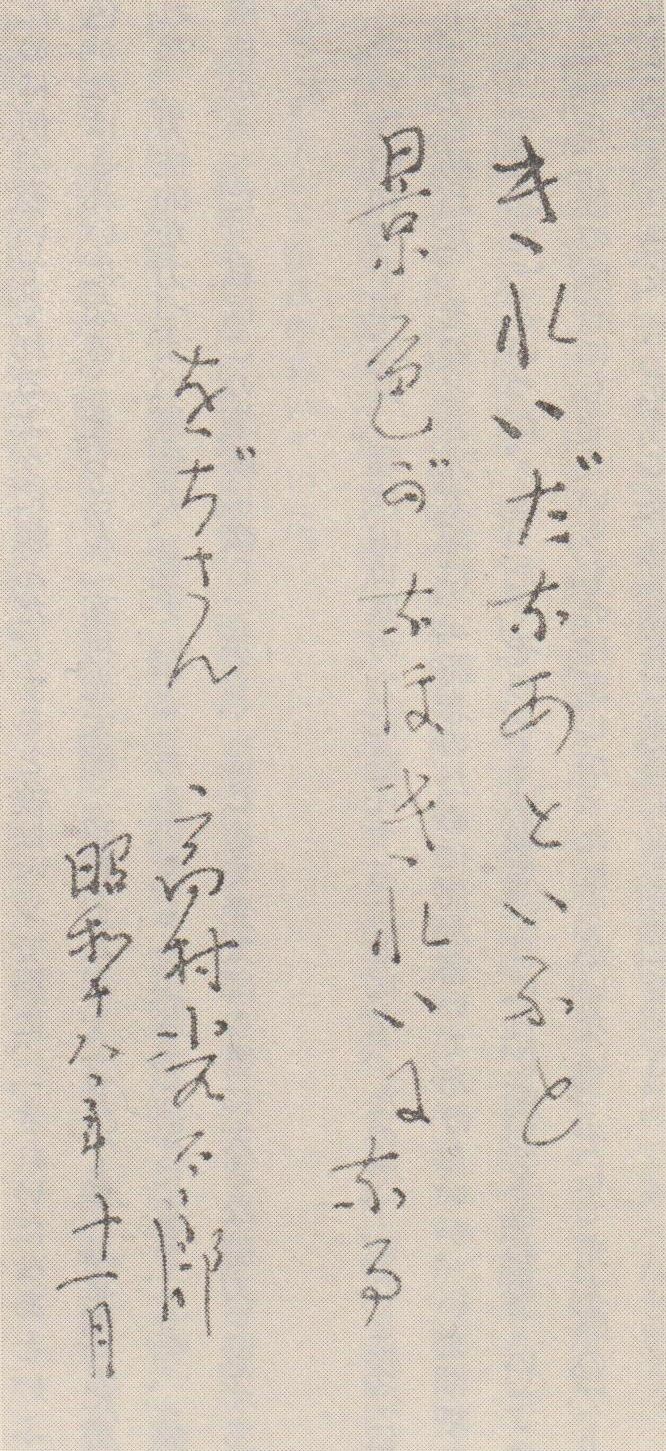 きれいだなあといふと
景色がなほきれいになる
をぢさん 高村光太郎
昭和十八年十一月